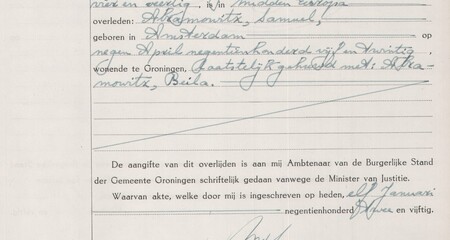 vier en veertig, is/in midden Europa
overleden: Abramowitz, Samuel,
geboren in Amsterdam op
negen April negentienhonderd vijf en twintig,
wonende te Groningen, laatstelijk gehuwd met: Abra-
mowitz, Beila.
De aangifte van dit overlijden is aan mij Ambtenaar van de Burgerlijke Stand
der Gemeente Groningen schriftelijk gedaan vanwege de Minister van Justitie.
Waarvan akte, welke door mij is ingeschreven op heden, elf Januari
negentienhonderd twee en vijftig.